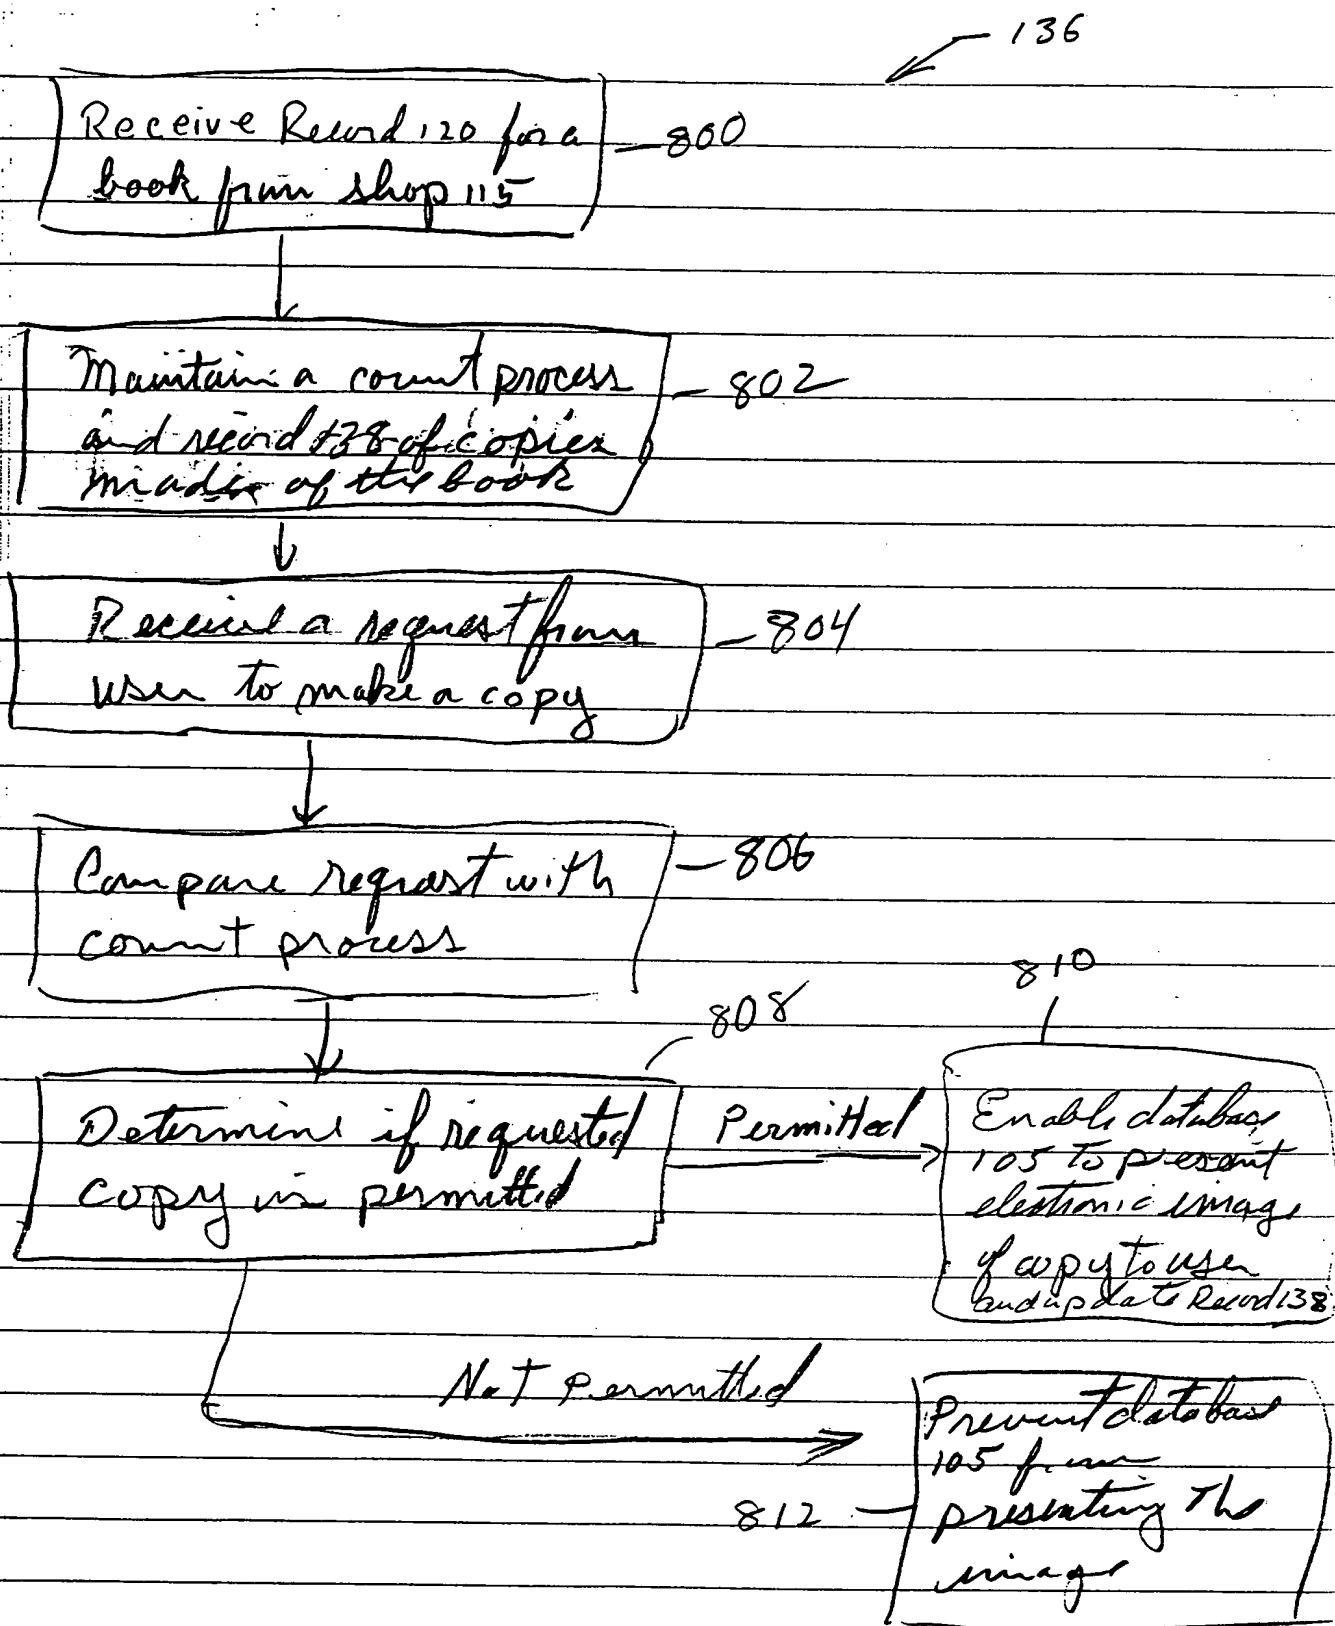 136
Receive Record 120 for a
book from shop 115
800
Maintain a count process
and record 138 of copies
made of the book
802
Receive a request from
user to make a copy
804
Compare request with
count process
806
Determine if requested
copy is permitted
808
Permitted
810
Enable database
105 to present
electronic image
of copy to user
and update Record 138
Not permitted
Prevent database
105 from
presenting the
image
812